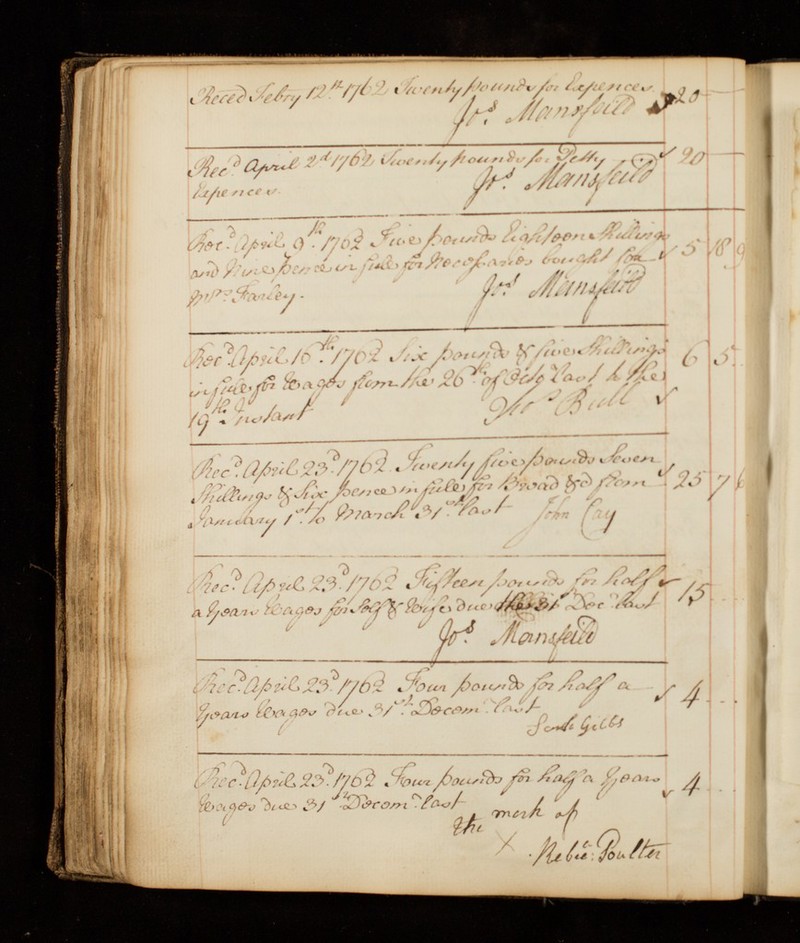 Reced Febry 12th 1762 Twenty pounds for Expences 20
Jos. Mansfeild
Recd. April 2d 1762 Twenty pounds for Petty 20
Expences.
Jos. Mansfeild
Recd. April 9th. 1762 Five pounds Eighteen Shillings
and Nine pence in full for Necessaries bought for 5 18 9
Mrs. Farley.
Jos. Mansfeild
Recd. April 16th. 1762 Six pounds & five Shillings 6 5
in full for Wages from the 26th. of last to the
19th. Instant
Thos Bull
Recd. April 23d. 1762 Twenty five pounds Seven
Shillings & Six pence in full for Bread &c from 25 7 6
January 1st. to March 31st. last John Cay
Recd. April 23d. 1762 Fifteen pounds for half 15
a Years Wages for Self & Wife due Decr. last
Jos. Mansfeild
Recd. April 23d. 1762 Four pounds for half a 4
Years Wages due 31st. Decemr. last
Gibbs
Recd. April 23d. 1762 Four pounds for half a Years 4
Wages due 31st. Decemr. last
The mark of
X
Rebeca: Poulter